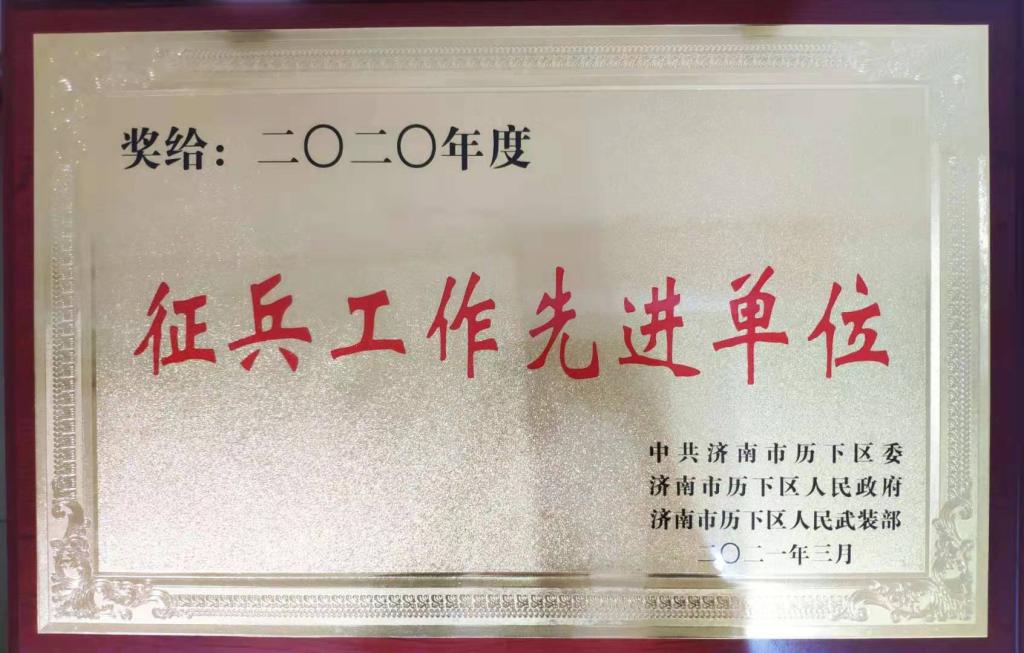 奖给：二〇二〇年度
征兵工作先进单位
中共济南市历下区委
济南市历下区人民政府
济南市历下区人民武装部
二〇二一年三月